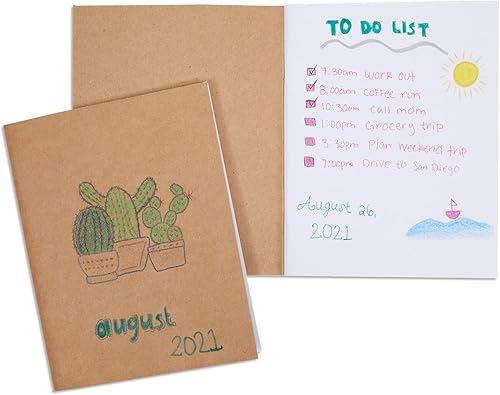 august
2021
TO DO LIST
7:30am Work out
8:00am Coffee run
10:30am Call mom
1:00pm Grocery trip
3:30pm Plan Weekend trip
7:00pm Drive to San Diego
August 26,
2021